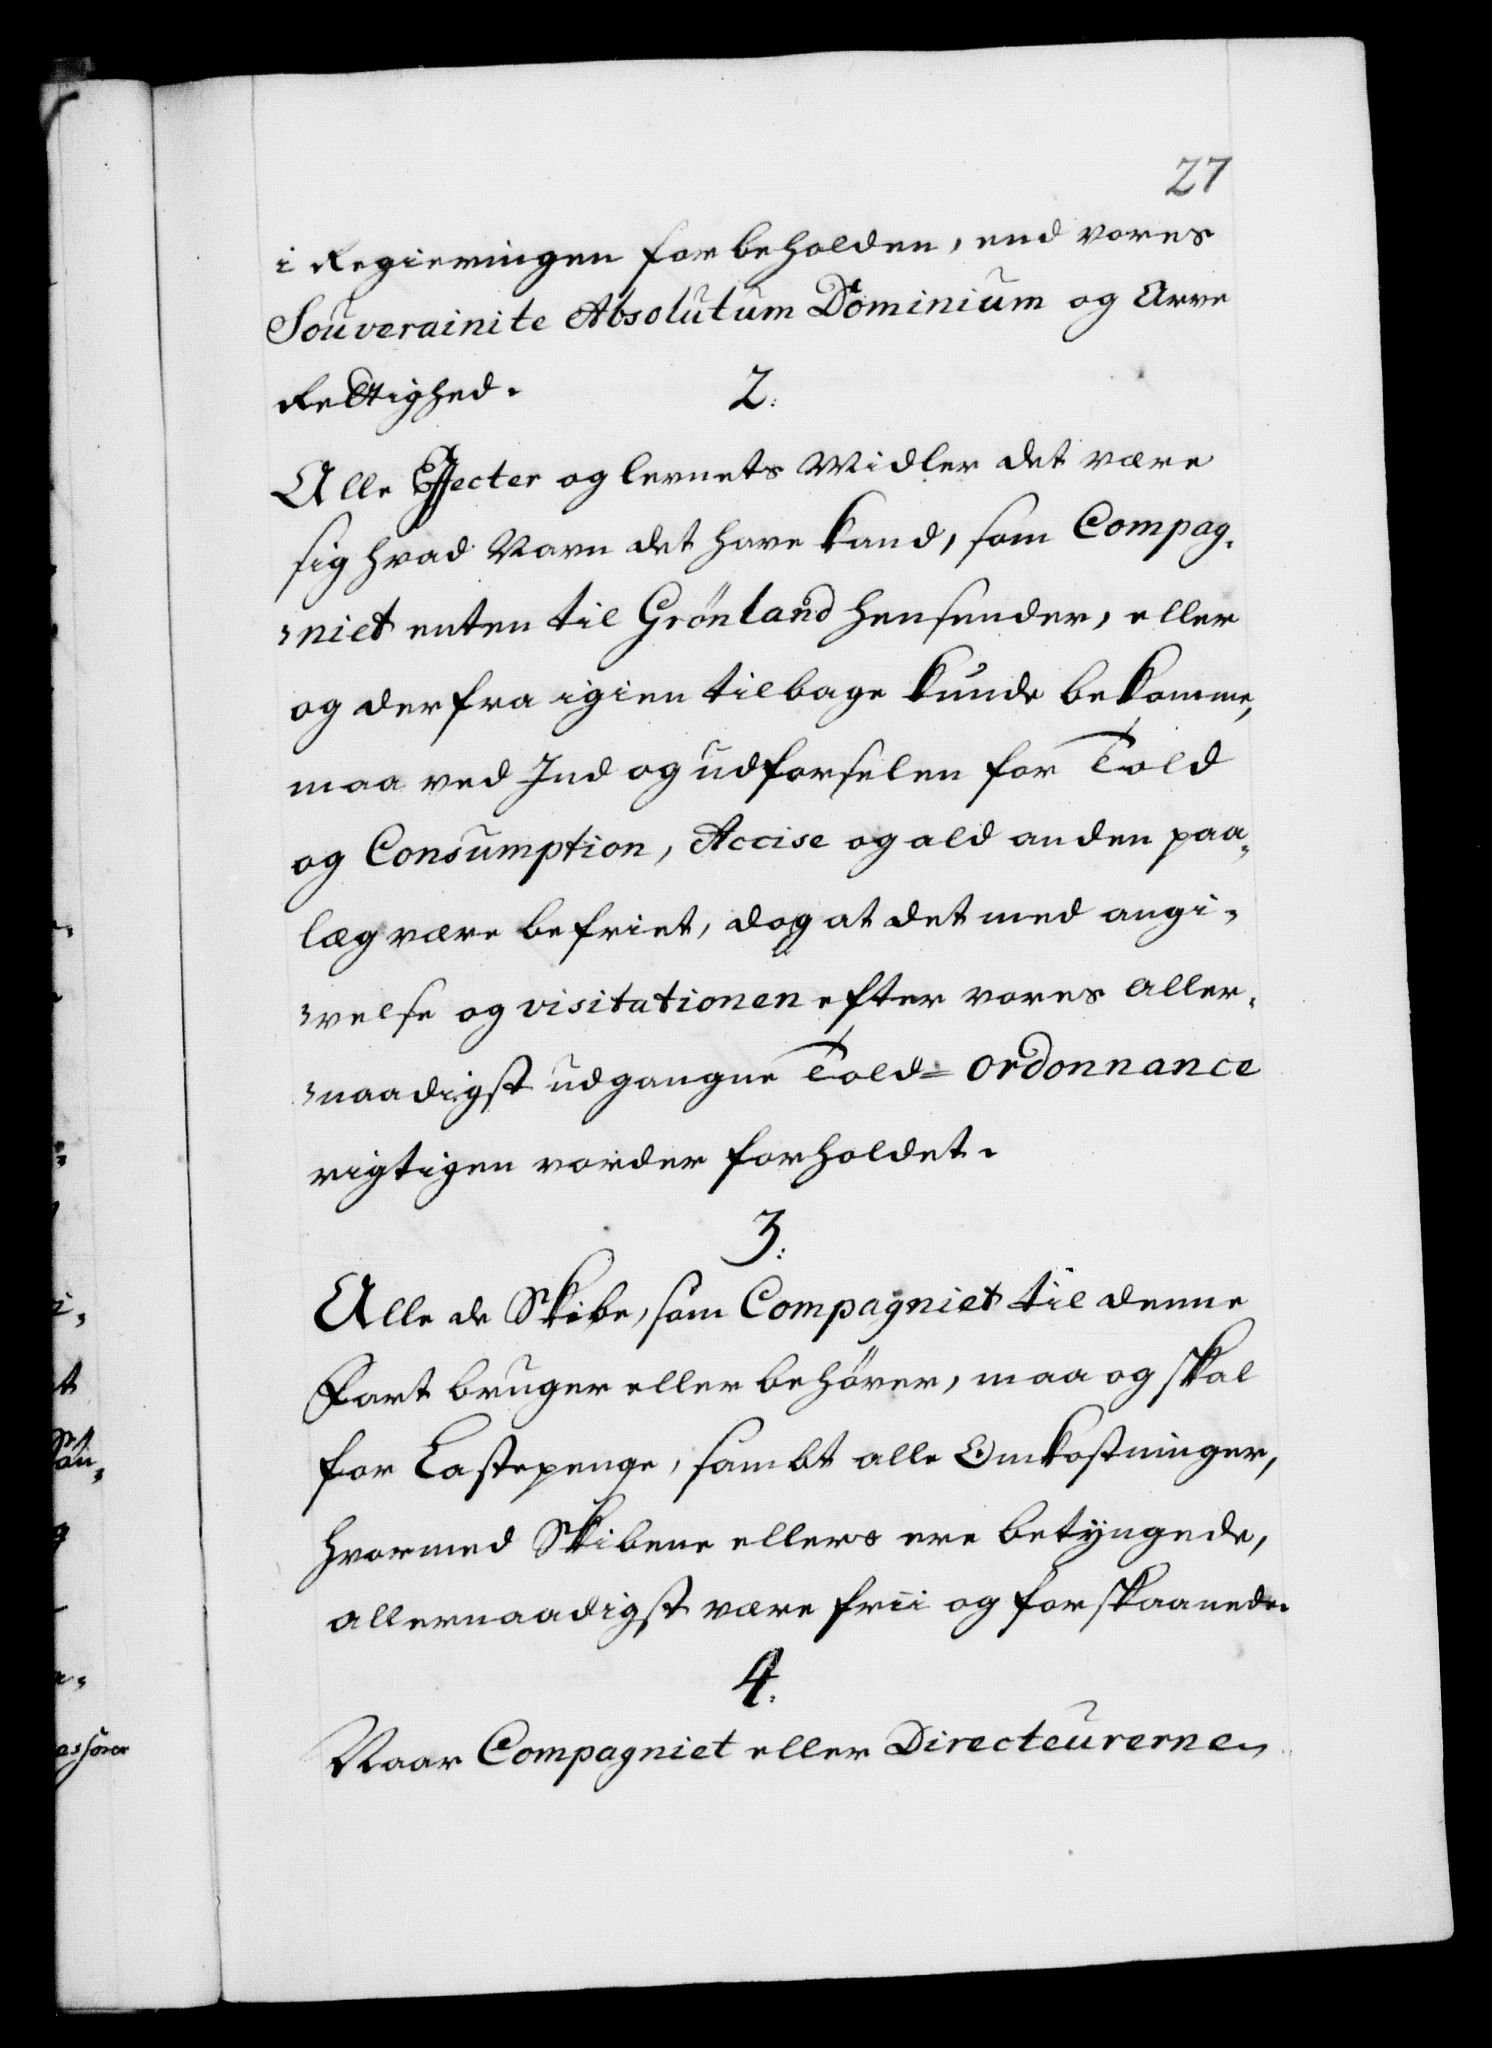 27
i Regieringen forbeholden, end vores
Souverainite Absolutum Dominium og Arve
Rettighed.
2.
Alle Effecter og levnets Midler det være
sig hvad Navn det have kand, som Compag,
,niet enten til Grönland hensender, eller
og derfra igien tilbage kunde bekomme,
maa ved Ind og udførselen for Told
og Consumption, Accise og ald anden paa,
læg være befriet, dog at det med angi,
,velse og visitationen efter vores aller,
,naadigst udgangne Told= ordonnance
rigtigen vorder forholdet.
3.
Alle de Skibe, som Compagniet til denne
Fart bruger eller behöver, maa og skal
for Lastepenge, sambt alle Omkostninger,
hvormed Skibene ellers ere betyngede,
allernaadigst være frii og forskaanede.
4.
Naar Compagniet eller Directeurerne,